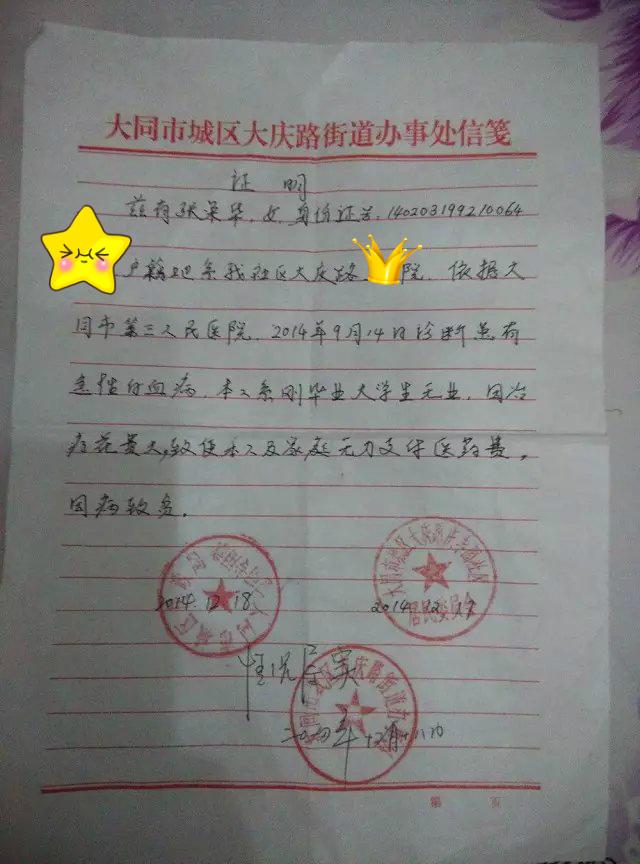 大同市城区大庆路街道办事处信笺
证明
兹有张荣华,女,身份证号:140203199210064
户籍地系我社区大庆路 院,依据大
同市第三人民医院,2014年9月14日诊断患有
急性白血病,本人系刚毕业大学生无业,因治
病花费大,致使本人及家庭无力支付医药费,
因病致贫。
2014.12.18
2014.12.17
居民委员会
情况属实
二〇一四年十二月十八日
第 页